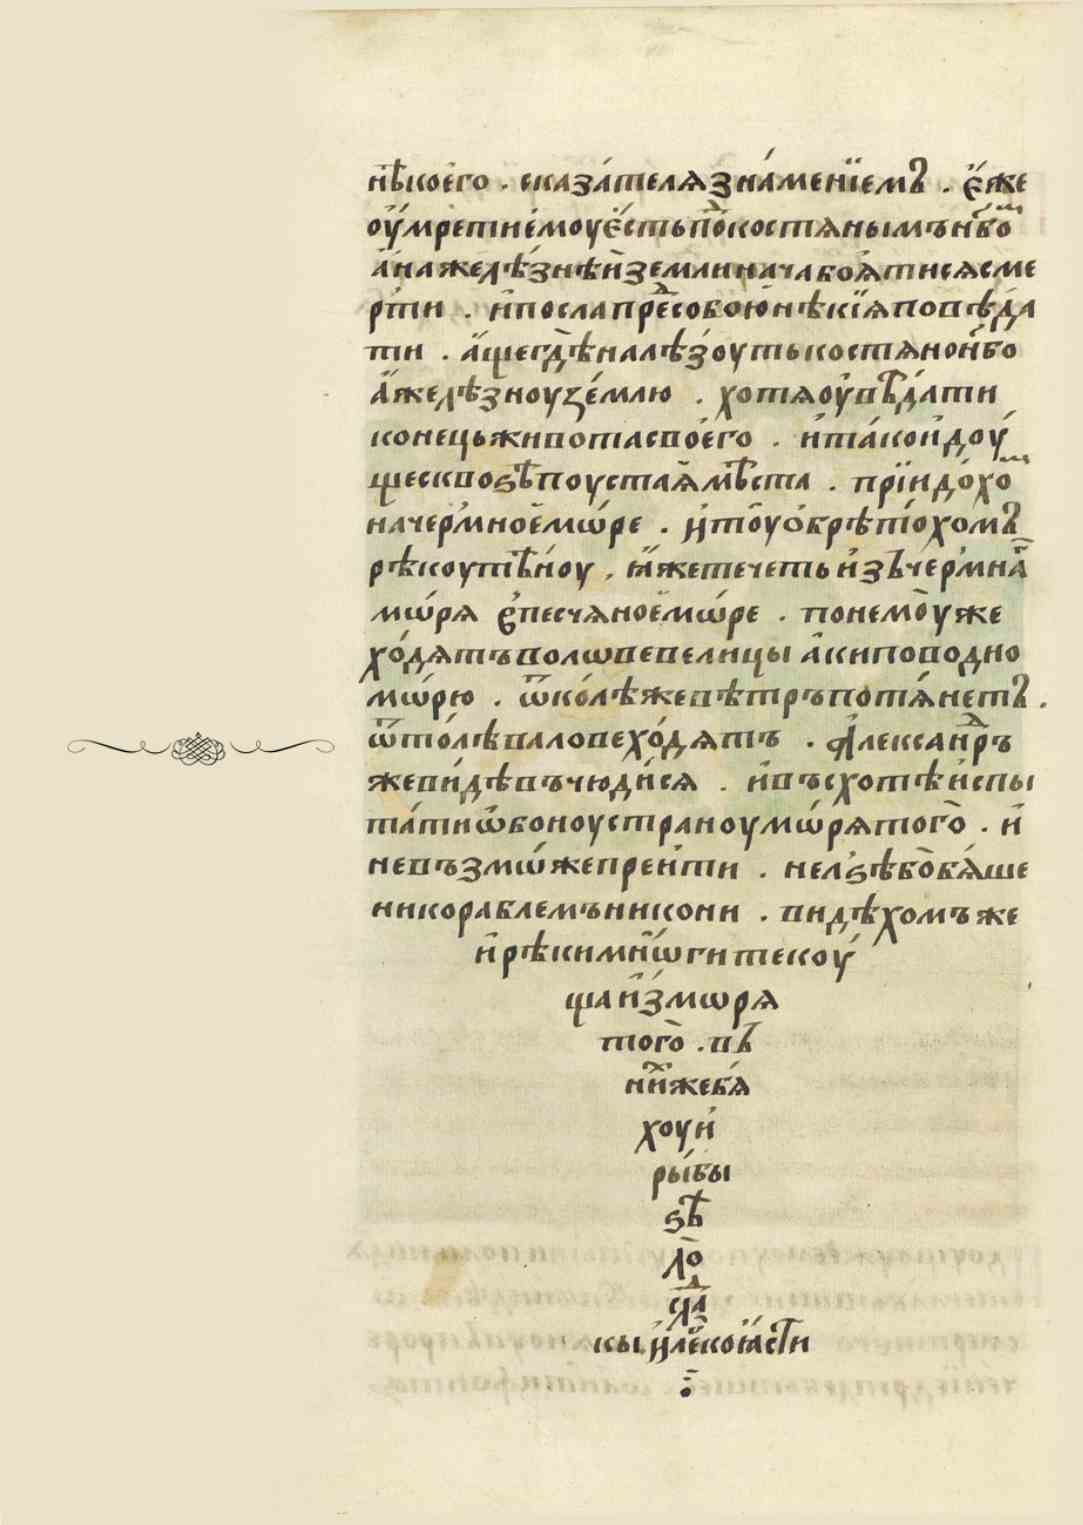 нѣ́коего . сказа́телѧ зна́менїемъ . є҆́же
оу҆мрети е҆моу є҆́сть по костѧнымъ нб҃о
а҆ на желѣ́знѣи земли нача боѧ́тисѧ сме
рти . и҆ посла пре собою нѣкїѧ повѣ́да
ти . а҆́ще гдѣ налѣзоуть костѧно нб҃о
а҆ желѣзноу зе́млю . хотѧ оу҆вѣ́дати
конець живота своего . и҆ та́ко и҆доу́
ще сквоѕѣ поустаѧ мѣста . прїидо́хо
на че́рмное мѡ́ре . и҆ тоу ѻбрѣтохомъ
рѣкоу тѣноу . ꙗ҆́же течеть и҆зъ чермна
мѡ́рѧ в песчѧное мѡ́ре . по немоу же
хо́дѧтъ волѡве велицы а҆ки по водно
мѡ́рю . ѿколѣ же вѣтръ потѧ́нетъ .
ѿто́лѣ валове хо́дѧтъ . А҆лекса́нръ
же ви́дѣвъ чюди́сѧ . и҆ въсхотѣ и҆спы
та́ти ѡбоноу страноу мѡ́рѧ того . и҆
не възмѡ́же преити . не лѕѣ бо бѧ́ше
ни кораблемъ ни кони . видѣхомъ же
и҆ рѣки мнѡги текоу́
ща и҆з мѡрѧ
того . въ
ни́же бѧ́
хоу и҆
ры́бы
ѕѣ
ло
сла
кы и҆ легко ꙗсти